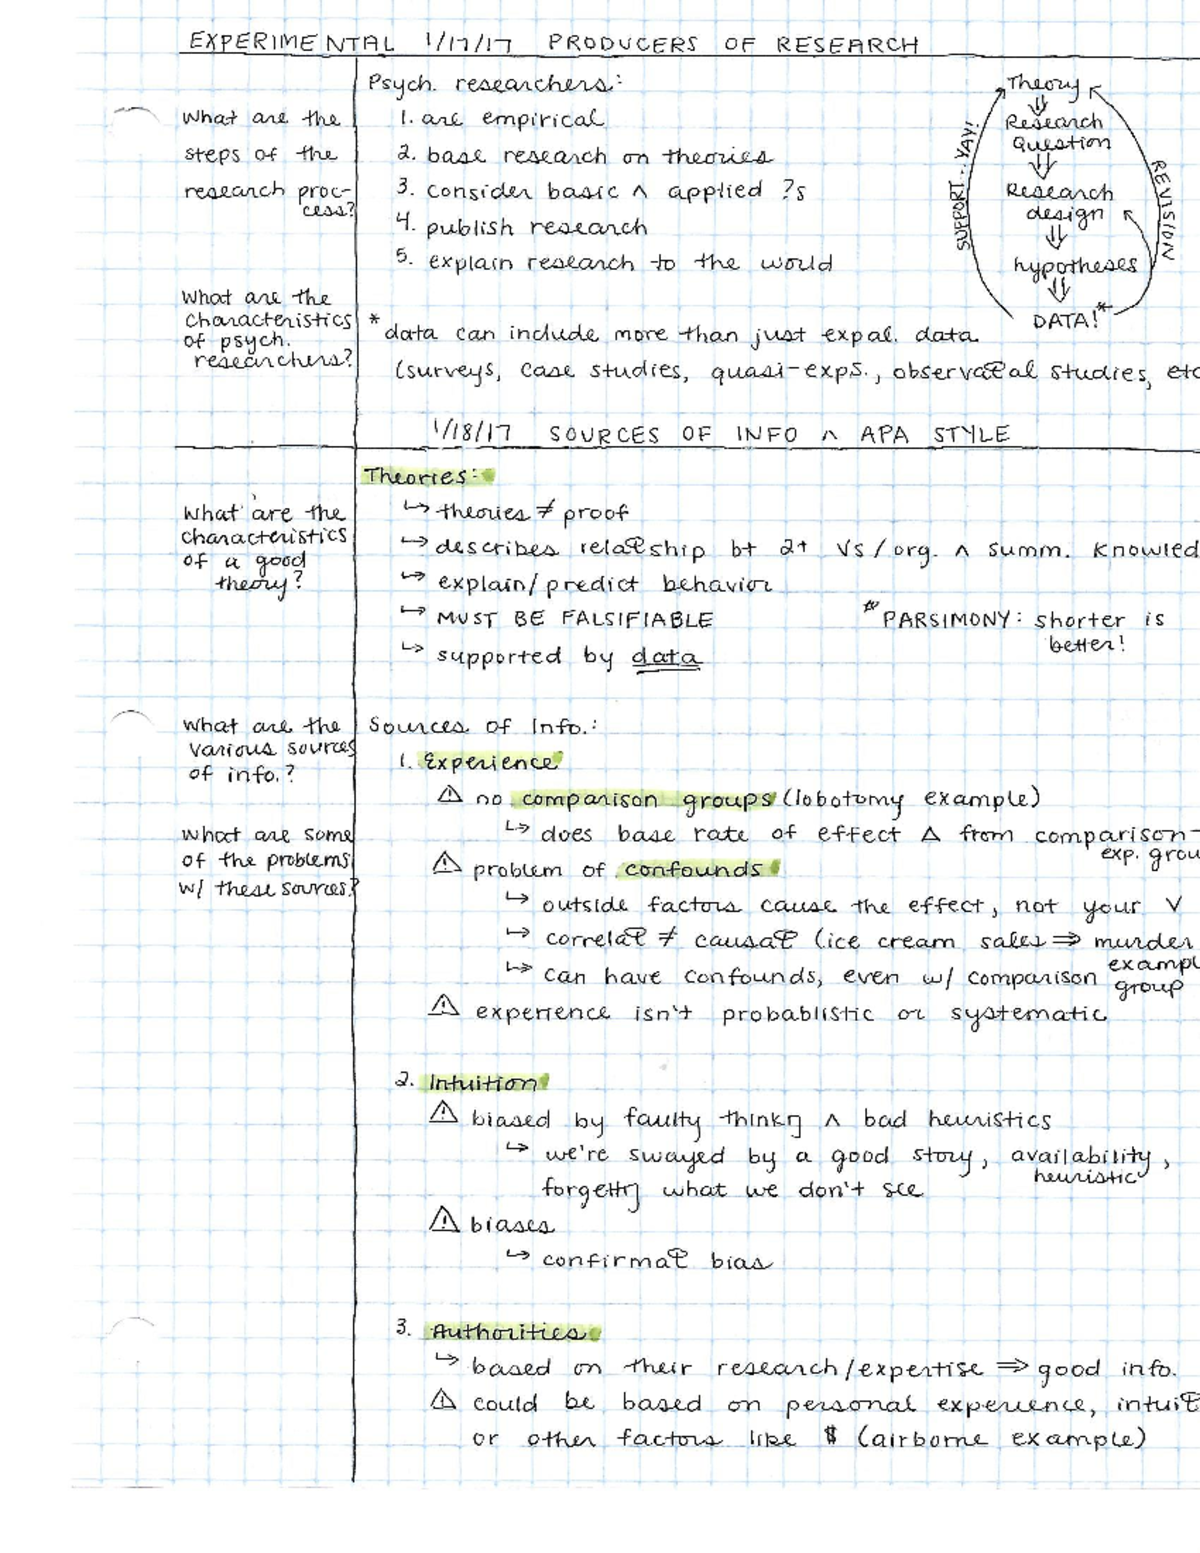 EXPERIMENTAL 1/17/17 PRODUCERS OF RESEARCH
What are the
steps of the
research proc-
cess?
What are the
characteristics
of psych.
researchers?
Psych. researchers:
1. are empirical
2. base research on theories
3. consider basic ^ applied ?s
4. publish research
5. explain research to the world
Theory
⇓
Research
Question
⇓
Research
design
⇓
hypotheses
⇓
DATA!*
SUPPORT...YAY!
REVISION
* data can include more than just expal. data
(surveys, case studies, quasi-exps., observatal studies, etc
1/18/17 SOURCES OF INFO ^ APA STYLE
What are the
characteristics
of a good
theory?
Theories:
↳ theories ≠ proof
↳ describes relatship bt 2+ Vs/org. ^ summ. knowled
↳ explain/predict behavior
↳ MUST BE FALSIFIABLE
↳ supported by data
* PARSIMONY: shorter is
better!
What are the
various sources
of info.?
What are some
of the problems
w/ these sources?
Sources of Info.:
1. Experience
⚠ no comparison groups (lobotomy example)
↳ does base rate of effect Δ from comparison→
exp. grou
⚠ problem of confounds
↳ outside factors cause the effect, not your V
↳ correlat ≠ causat (ice cream sales ⇒ murder
exampl
↳ can have confounds, even w/ comparison
group
⚠ experience isn't probablistic or systematic
2. Intuition
⚠ biased by faulty thinkg ^ bad heuristics
↳ we're swayed by a good story, availability,
heuristic
forgettg what we don't see
⚠ biases
↳ confirmat bias
3. Authorities
↳ based on their research/expertise ⇒ good info.
⚠ could be based on personal experience, intuit
or other factors like $ (airborne example)